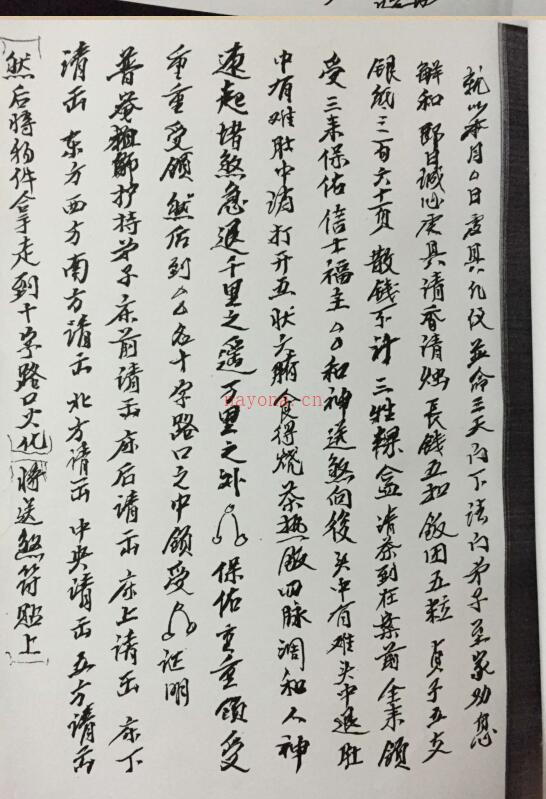 就以本月厶日虔具礼仪并给三天门下请问弟子至家劝息
解和 即日诚心虔具清香清烛 長钱五扣 飯团五粒 貞子五支
银紙三百六十頁 散钱不计 三牲粿盒 清茶到在案前 全来領
受 三来保佑 信士福主 厶厶和神送煞向後 头中有难头中退 肚
中有难肚中消 打开五状六腑 食得燒茶熱飯 四脉调和 人神
速起 猪煞急退千里之遥 万里之外 保佑 重重領受
重重受領 然后到厶厶名十字路口之中領受 证明
普庵祖師护持弟子 床前請出 床后請出 床上請出 床下
請出 东方西方南方請出 北方請出 中央請出 五方請出
然后将物件拿走到十字路口火化 将送煞符貼上
nayona.cn